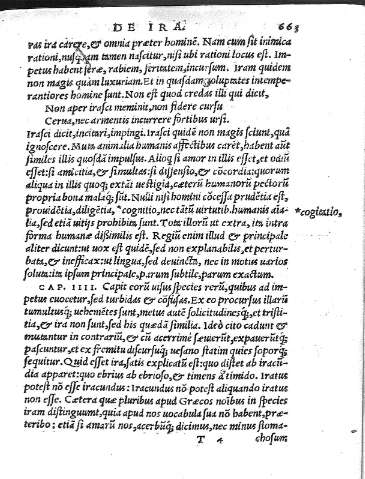 DE IRA. 663
ras ira carere, & omnia præter hominē. Nam cum sit inimica
rationi, nusquam tamen nascitur, nisi ubi rationi locus est. Im-
petus habent feræ, rabiem, feritatem, incursum. Iram quidem
non magis quàm luxuriam. Et in quasdam uoluptates intempe-
rantiores homine sunt. Non est quòd credas illi qui dicit,
Non aper irasci meminit, non fidere cursu
Cerua, nec armentis incurrere fortibus ursi.
Irasci dicit, incitari, impingi. Irasci quidē non magis sciunt, quā
ignoscere. Muta animalia humanis affectibus carēt, habent autē
similes illis quosdā impulsus. Alioq si amor in illis esset, et odiū
esset: si amicitia, & simultas: si dissensio, & cōcordia: quorum
aliqua in illis quoq; extāt uestigia, cæterū humanorū pectorū
propria bona malaq; sūt. Nulli nisi homini cōcessa prudētia est,
prouidētia, diligētia, *cognitio, nec tātū uirtutib. humanis aīa-
*cogitatio,
lia, sed etiā uitijs prohibita sunt. Tota illorū ut extra, ita intra
forma humanæ dissimilis est. Regiū enim illud & principale
aliter dicunt: ut uox est quidē, sed non explanabilis, et pertur-
bata, & inefficax: ut lingua, sed deuincta, nec in motus uarios
soluta: ita ipsum principale, parum subtile, parum exactum.
CAP. IIII. Capit eorū uisus species rerū, quibus ad im
petus euocetur, sed turbidas & cōfusas. Ex eo procursus illarū
tumultusq; uehemētes sunt, metus autē solicitudinesq;, et tristi-
tia, & ira non sunt, sed his quædā similia. Ideò citò cadunt &
mutantur in contrariū, & cū acerrimè sæuierūt, expauerūtq;
pascuntur, et ex fremitu discursuq; uesano statim quies soporq;
sequitur. Quid esset ira, satis explicatū est: quo distet ab iracū-
dia apparet: quo ebrius ab ebrioso, & timens à timido. Iratus
potest nō esse iracundus: iracundus nō potest aliquando iratus
non esse. Cætera quæ pluribus apud Græcos noībus in species
iram distinguunt, quia apud nos uocabula sua nō habent, præ-
teribo: etiā si amarū nos, acerbūq; dicimus, nec minus stoma-
T 4 chosum